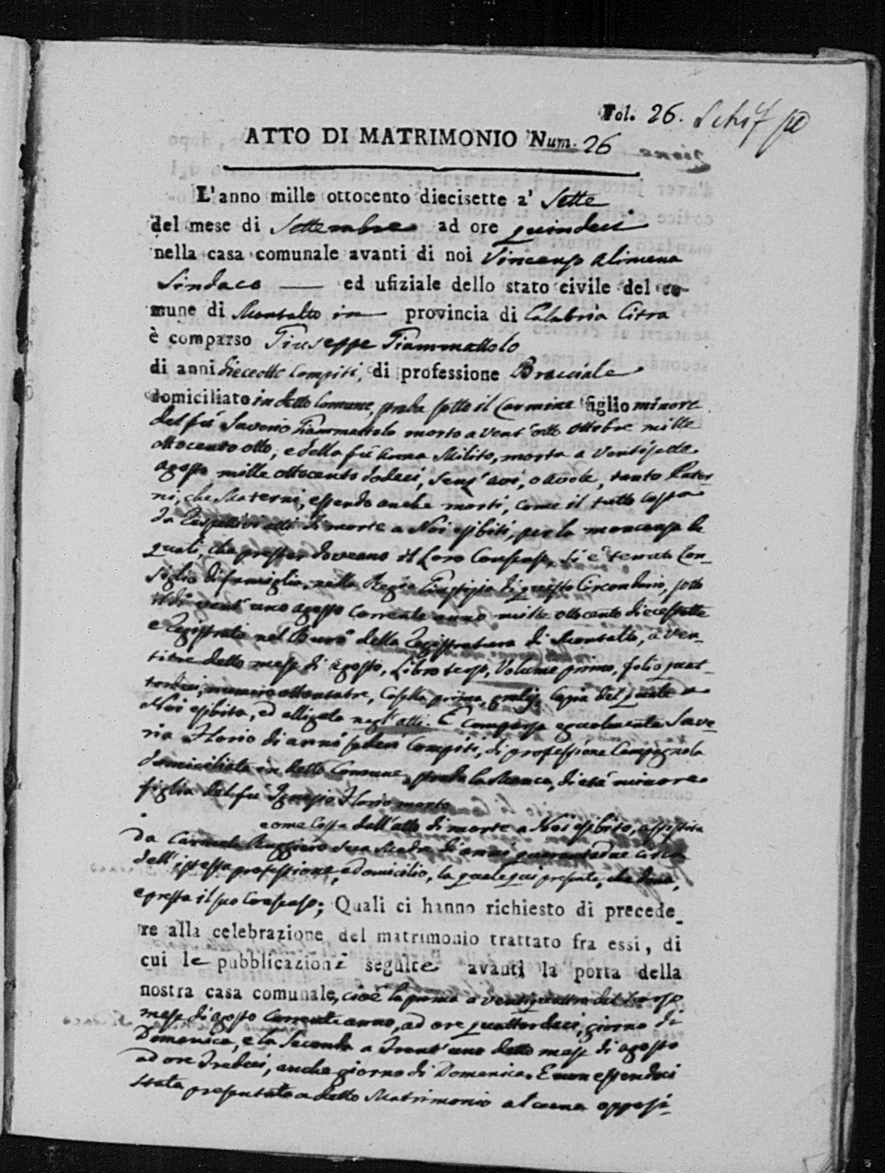 Fol. 26.
ATTO DI MATRIMONIO Num. 26
L'anno mille ottocento diecisette a' Sette
del mese di Settembre ad ore quindeci
nella casa comunale avanti di noi Vincenzo Alimena
Sindaco — ed ufiziale dello stato civile del co-
mune di Montalto in provincia di Calabria Citra
è comparso Giuseppe Fiammattolo
di anni dieceotto compiti, di professione Bracciale
domiciliato in detto Comune, strada sotto il Carmine figlio minore
del fù Saverio Fiammattolo morto a vent'otto ottobre mille
ottocento otto, e della fù Anna Milito, morta a ventisei
agosto mille ottocento dodeci, senz'avi, o avole, tanto Pater-
ni, che Materni, essendo anche morti, come il tutto costa
da rispettivi atti di morte a Noi esibiti, per la mancanza de
quali, che prestar doveano il loro Consenso, si è tenuto Con-
siglio di famiglia, nella Regia Giustizia di questo Circondario, sotto
il dì vent'uno agosto corrente anno mille ottocento diecessette
e registrato nel Burò della Registratura di Montalto, a ven-
titre detto mese di agosto, Libro terzo, Volume primo, folio quat-
tordici, numero ottantatre, Casella prima, copia del quale a
Noi esibito, ed alligato negl'atti. È comparsa egualmente Save-
ria Ilario di anni sedeci compiti, di professione Campagnola
domiciliata in detto Comune, strada la Manca, di età minore
figlia del fù Ignazio Ilario morto
come costa dall'atto di morte a Noi esibito, assistita
da Carmela Ruggiero sua Madre di anni quarantadue circa
dell'istessa professione, e domicilio, la quale qui presente,
e presta il suo Consenso; Quali ci hanno richiesto di precede_
re alla celebrazione del matrimonio trattato fra essi, di
cui le pubblicazioni seguite avanti la porta della
nostra casa comunale, cioè la prima a ventiquattro del scorso
mese di agosto corrente anno, ad ore quattordeci, giorno di
Domenica, e la seconda a trent'uno detto mese di agosto
ad ore tredeci, anche giorno di Domenica. E non essendoci
stata presentata a detto Matrimonio alcuna opposi-